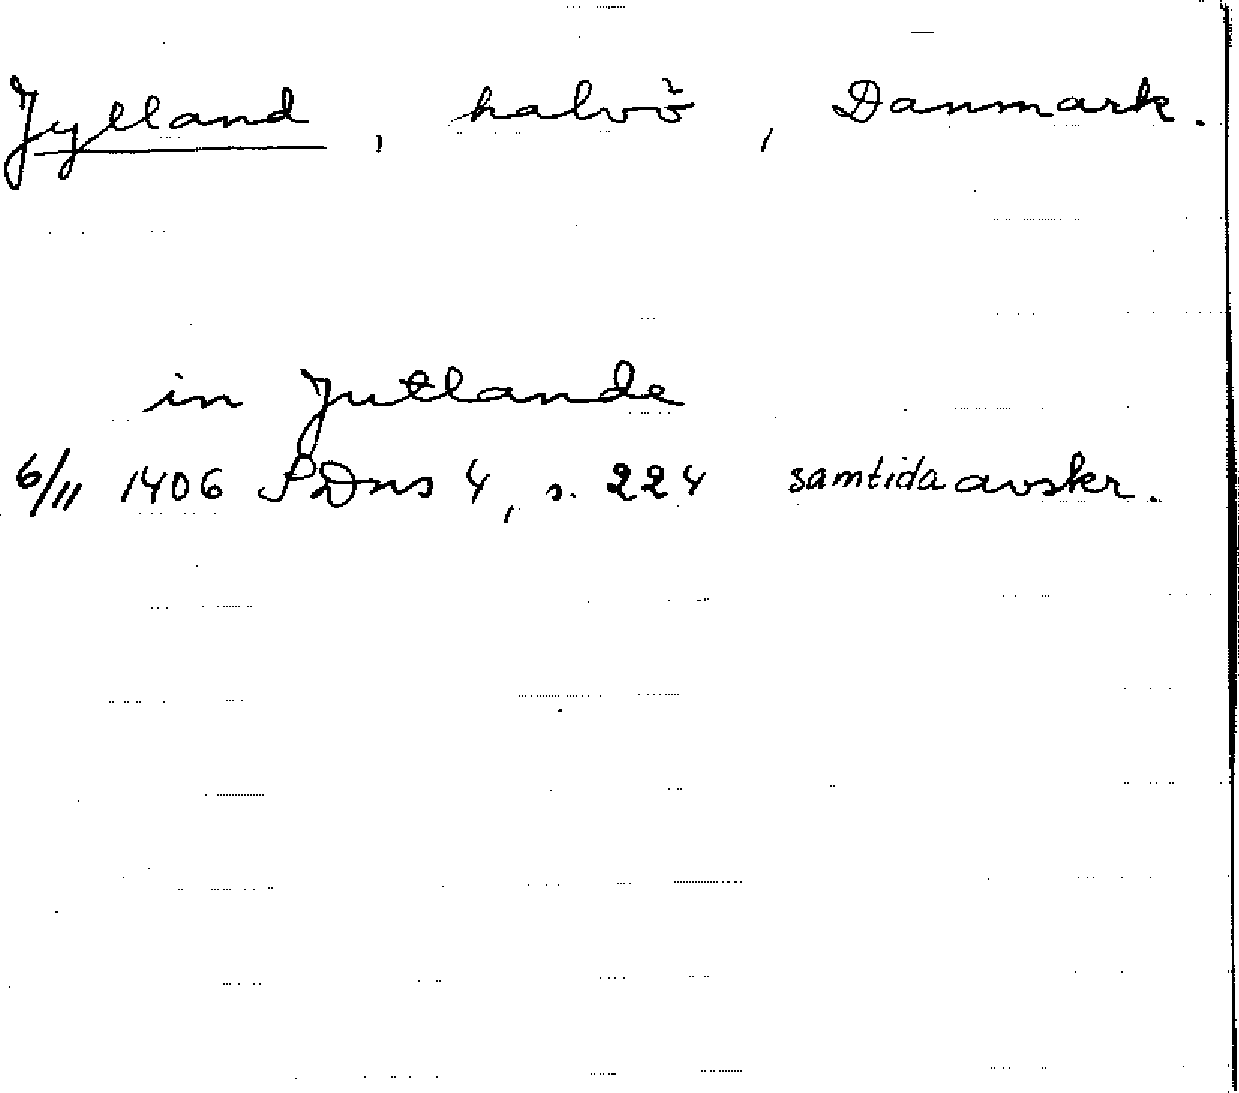 Jylland, halvö, Danmark.
in Jutlande
6/11 1406 SDns 4, s. 224 samtida avskr.